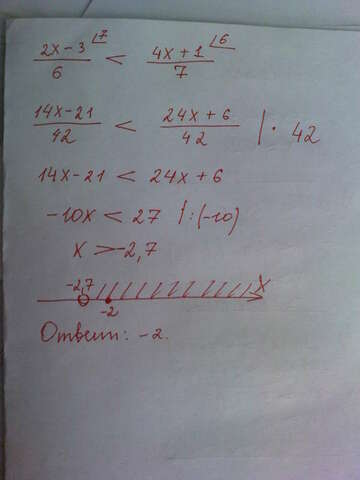 (2x-3)/6 ⌊7 < (4x+1)/7 ⌊6
(14x-21)/42 < (24x+6)/42 |· 42
14x-21 < 24x+6
-10x < 27 |:(-10)
x > -2,7
-2,7 -2 x
Ответ: -2.